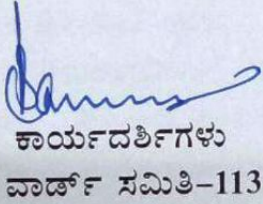 ಕಾರ್ಯದರ್ಶಿಗಳು
ವಾರ್ಡ್ ಸಮಿತಿ-113